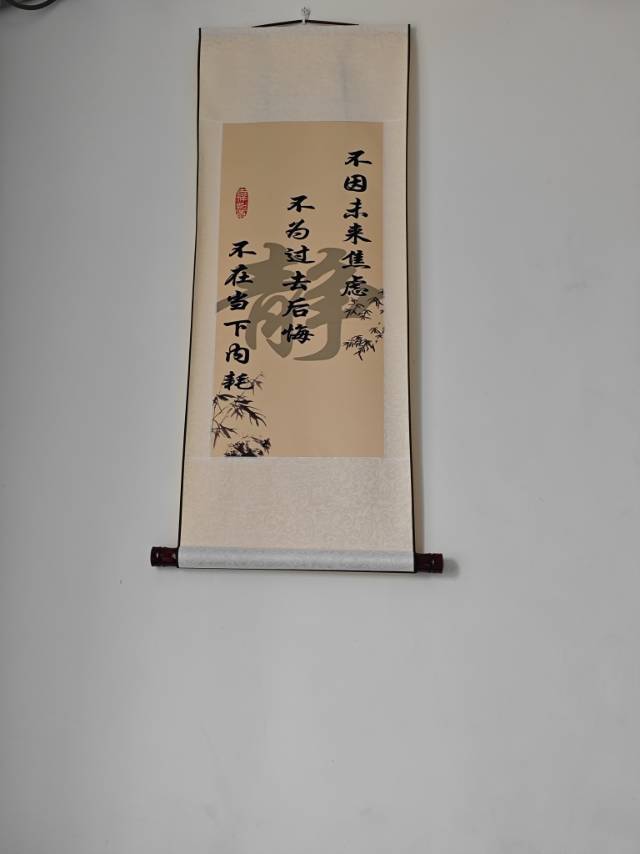 不因未来焦虑
不为过去后悔
不在当下内耗
静